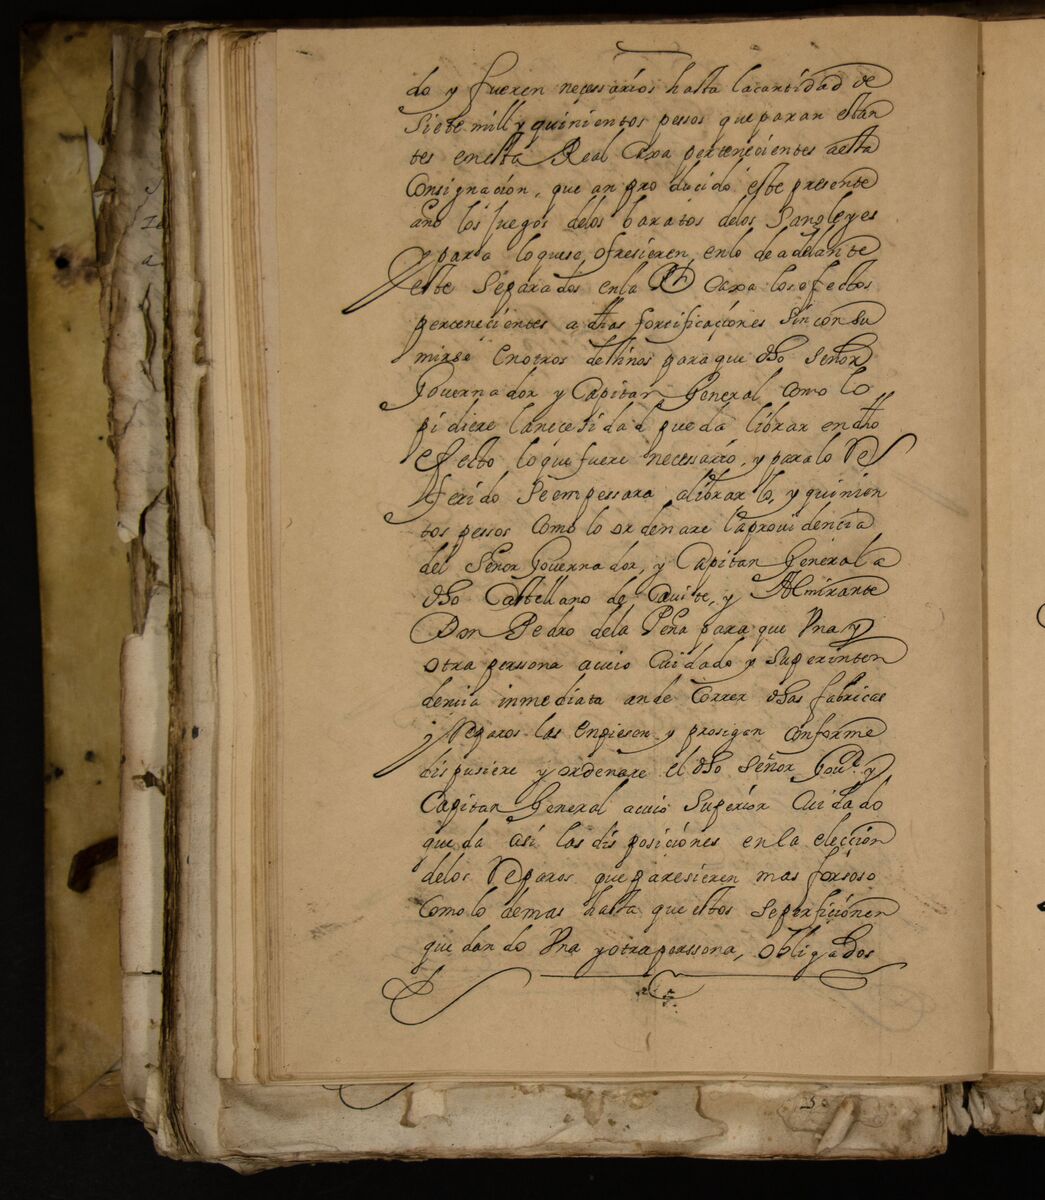 do y fueren neçessários hasta lacantidad de
Siete mill y quinientos pessos que paran estan
tes enesta Real Caxa pertenecientes aesta
Consignación, que an pro ducido este presente
año los juegos delos baratos delos Sangleyes
y para loquese ofresieren enlo deadelante
esté separados enla Rl Caxa losefectos
pertenecientes a dhas fortificaçiones sin consu
mirse enotros destinos paraque dho Señor
Governador y Capitan General como lo
pidiere lanecesidad pueda librar en dho
efecto loque fuere necessario, y paralo Re
ferido Se empessara alibrar lo, y quinien
tos pessos como lo ordenare laprouidencia
del Señor Governador, y Capitan General a
dho Castellano de Cauite, y Almirante
Don Pedro dela Peña para que Vna y
otra persona acuio cuidado y superinten
dencia inmediata ande correr dhas fabricas
y Reparos las enpiesen y prosigan conforme
dispusiere y ordenare el dho Señor Gour. y
Capitan General acuio Superior Cuidado
queda asi las disposiciónes en la elección
delos Reparos que paresieren mas forsoso
Como lo demas hasta que estos seperficiónen
quedando Vna yotrapersona, obligados